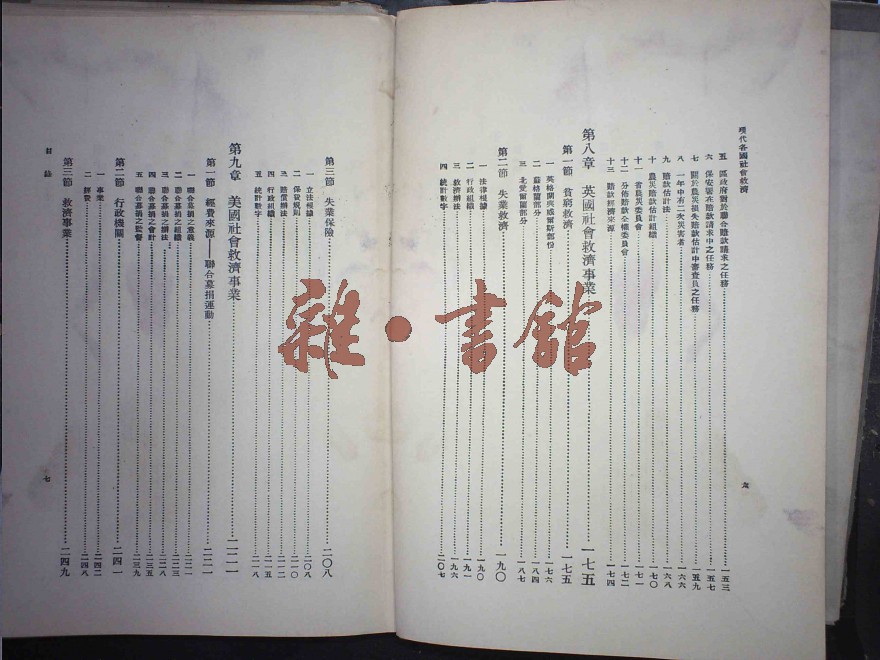 現代各國社會救濟
五 區政府對於聯合賠款請求之任務 一五三
六 保安署在賠款請求中之任務 一五七
七 關於農災損失賠款估計中審查員之任務 一五九
八 一年中有二次災害者 一六六
九 賠款估計法 一六八
十 農災賠款估計組織 一七〇
十一 省農災委員會 一七一
十二 分佈賠款全權委員會 一七二
十三 賠款經濟來源 一七四
第八章 英國社會救濟事業 一七五
第一節 貧窮救濟 一七五
一 英格蘭與威爾斯部份 一七六
二 蘇格蘭部分 一八四
三 北愛爾蘭部分 一八七
第二節 失業救濟 一九〇
一 法律根據 一九〇
二 行政組織 一九一
三 救濟辦法 一九六
四 統計數字 二〇七
六
第三節 失業保險 二〇八
一 立法根據 二〇八
二 保費規則 二一〇
三 賠償辦法 二一二
四 行政組織 二一五
五 統計數字 二一八
第九章 美國社會救濟事業 二二一
第一節 經費來源——聯合募捐運動 二二一
一 聯合募捐之意義 二二一
二 聯合募捐之組織 二二三
三 聯合募捐之辦法 二二八
四 聯合募捐之會計 二三五
五 聯合募捐之監督 二三九
第二節 行政機關 二四一
一 事業 二四二
二 經費 二四八
第三節 救濟事業 二四九
目錄
七
雜·書館